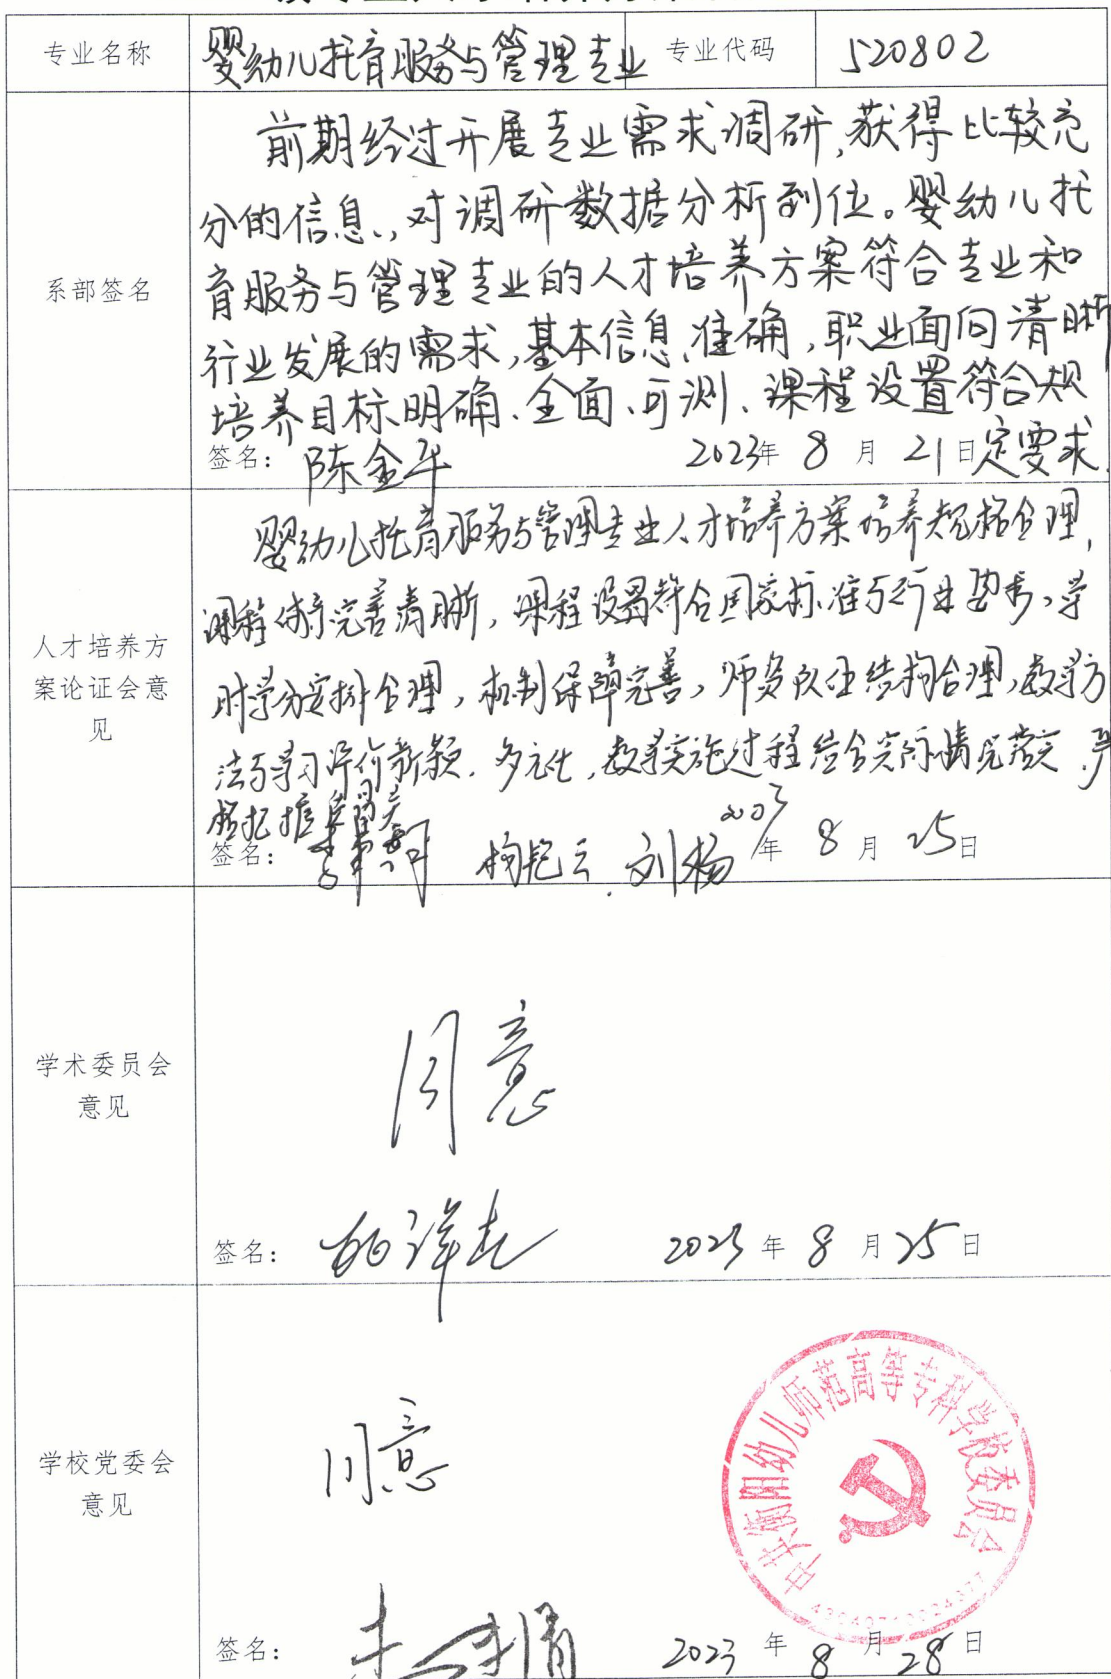 专业名称 婴幼儿托育服务与管理专业 专业代码 520802
前期经过开展专业需求调研,获得比较充
分的信息,对调研数据分析到位。婴幼儿托
系部签名
育服务与管理专业的人才培养方案符合专业和
行业发展的需求,基本信息准确,职业面向清晰
培养目标明确、全面、可测、课程设置符合规
定要求.
签名: 陈金平 2023年 8 月 21日
婴幼儿托育服务与管理专业人才培养方案培养规格合理,
课程体系完善清晰,课程设置符合国家标准与行业要求,学
人才培养方
案论证会意
见
时学分安排合理,机制保障完善,师资队伍结构合理,教学方
法与学习评价新颖.多元化,教学实施过程结合实际情况落实.严
格把握
签名: 刘杨 年 8 月 25日
学术委员会
意见
同意
签名: 2023 年 8 月 25 日
学校党委会
意见
同意
中共衡阳幼儿师范高等专科学校委员会
签名: 2023 年 8 月 28 日